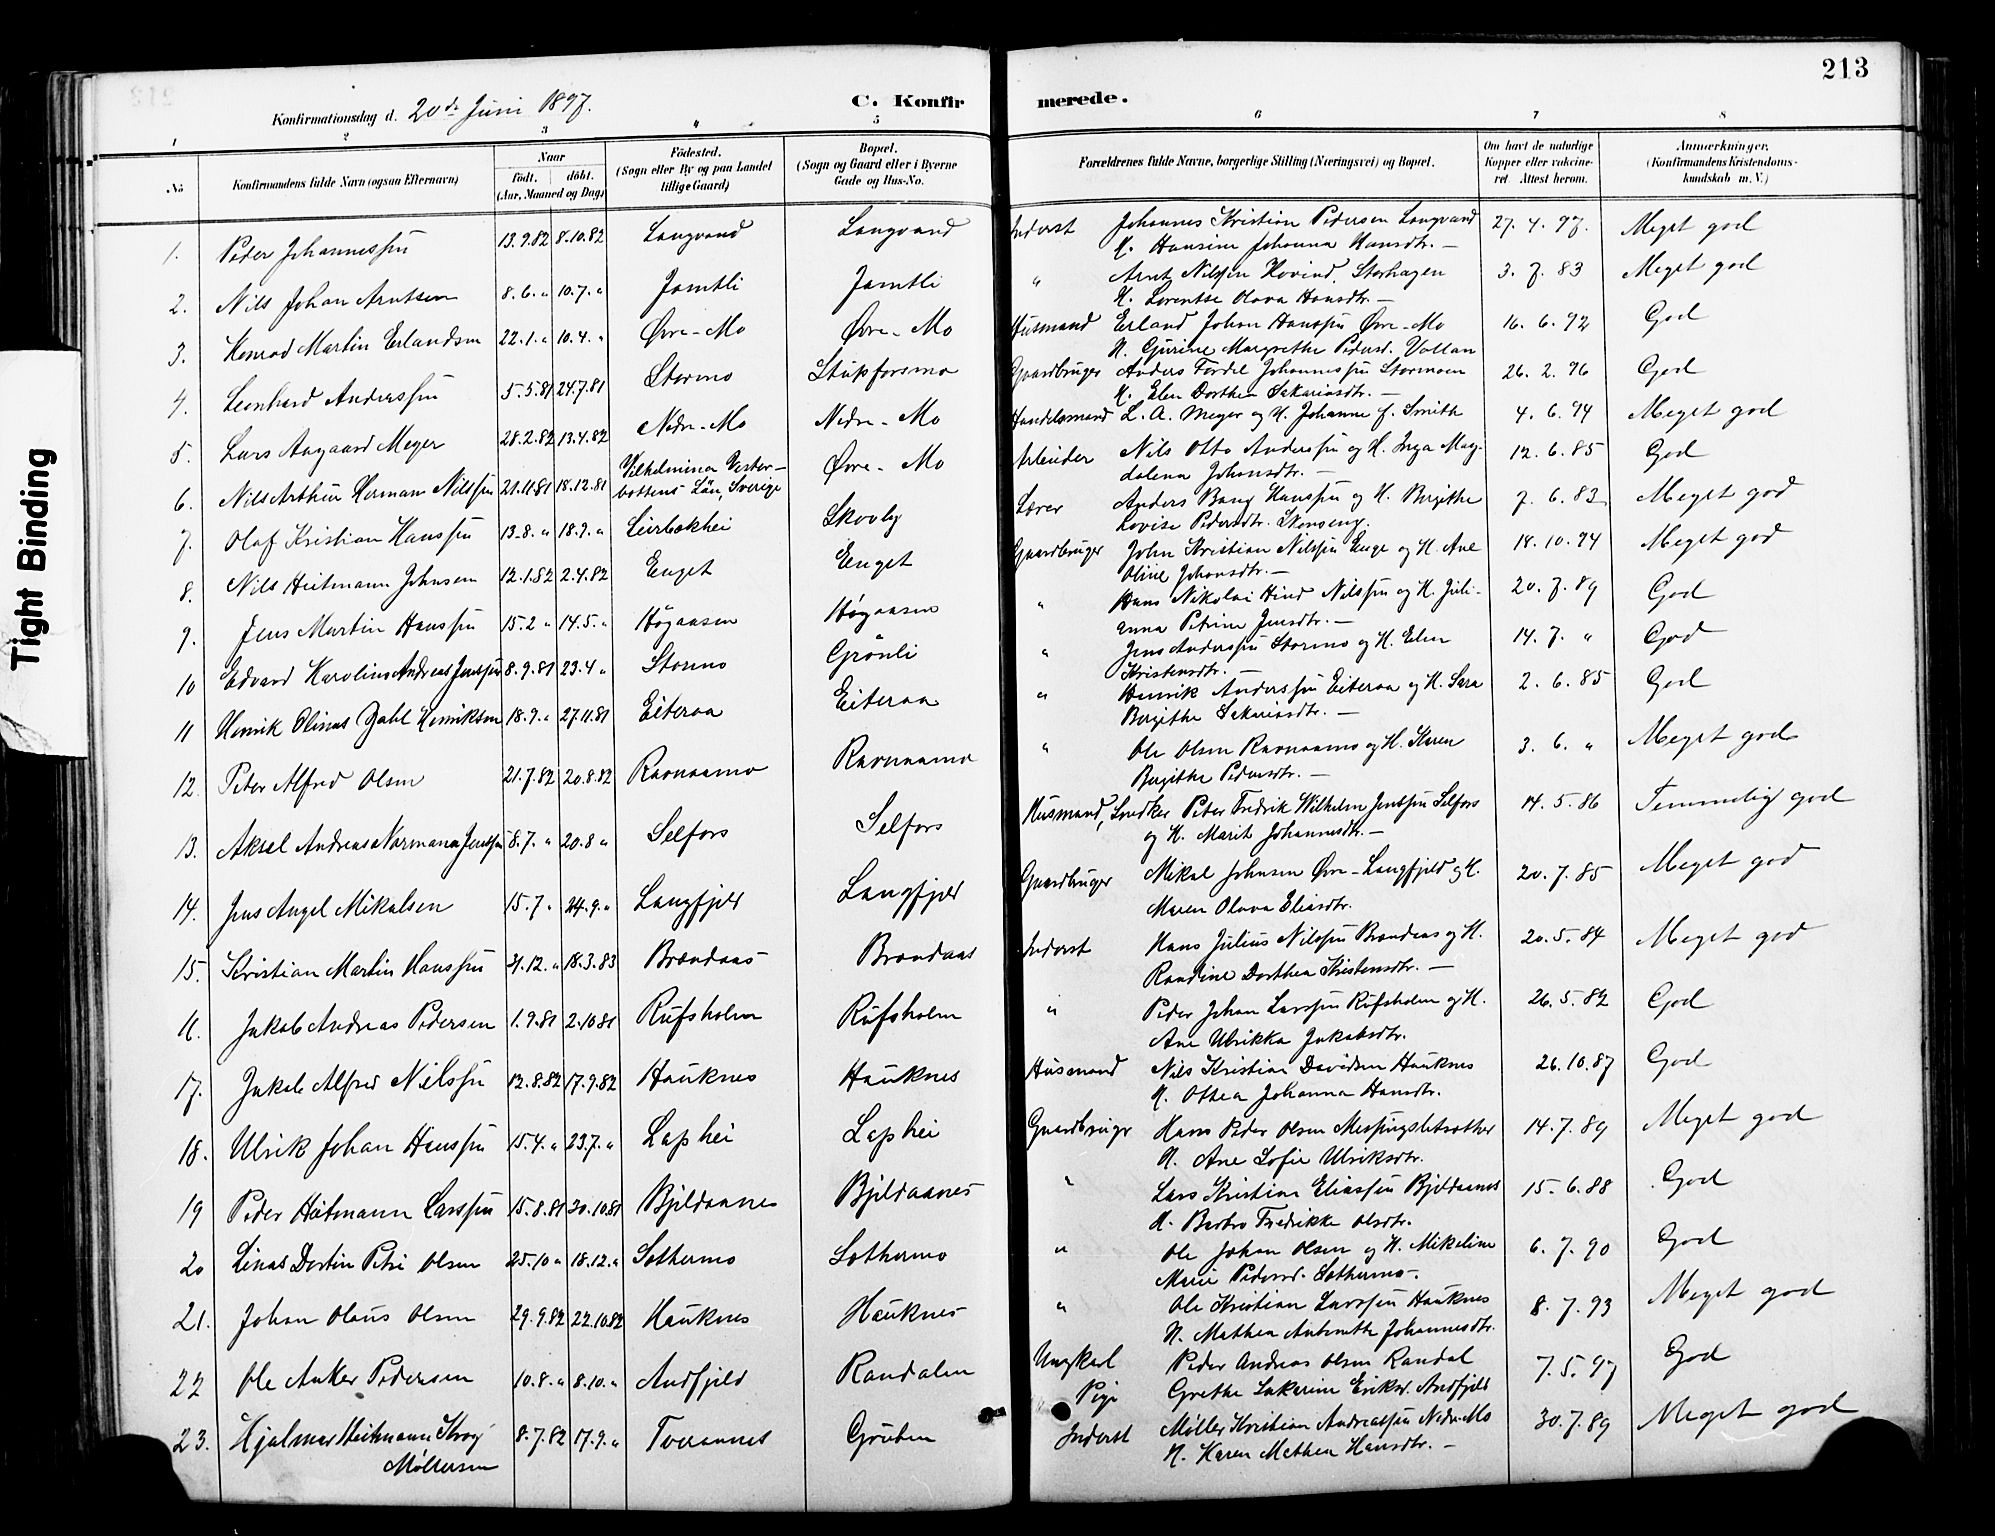 213
Konfirmationsdag d. 20de Juni 1897.
C. Konfirmerede.
1 2 3 4 5 6 7 8
No
Konfirmandens fulde Navn (ogsaa Efternavn)
Naar
födt. döbt.
(Aar, Maaned og Dag)
Födested.
(Sogn eller By og paa Landet
tillige Gaard)
Bopæl.
(Sogn og Gaard eller i Byerne
Gade og Hus-No.
Forældrenes fulde Navne, borgerlige Stilling (Næringsvei) og Bopæl.
Om havt de naturlige
Kopper eller vakcine-
ret. Attest herom.
Anmærkninger.
(Konfirmandens Kristendoms-
kundskab m. V.)
1. Peder Johannessen 13.9.82 8.10.82 Langvand Langvand Inderst Johannes Kristian Pedersen Langvand 27.4.97. Meget god
H. Hansine Johanna Hansdtr. —
2. Nils Johan Arntsen 8.6. „ 10.7. „ Jamtli Jamtli „ Arnt Nilssen Hovind, Storhagen 3.7.83 Meget god
H. Lorentse Olava Hansdtr. —
3. Konrad Martin Erlandsen 22.1. „ 10.4. „ Øvre-Mo Øvre-Mo Husmand Erland Johan Hanssen Øvre-Mo 16.6.92 God
H. Gurine Margrethe Pedersd. Vollan
4. Leonhard Anderssen 5.5.81 24.7.81 Stormo Stupforsmo Gaardbruger Anders Fordel Johannessen Stormoen 26.2.96 God
H. Elen Dorthea Sakariasdtr. —
5. Lars Aagaard Meyer 28.2.82 13.4.82 Nedre-Mo Nedre-Mo Handelsmand L. A. Meyer og H. Johanne f. Smith 4.6.94 Meget god
6. Nils Arthur Herman Nilssen 21.11.81 18.12.81 Vilhelmina Vester- Øvre-Mo Arbeider Nils Otto Anderssen og H. Inga Mag- 12.6.85 God
bottens Län, Sverige dalena Johansdtr. —
7. Olaf Kristian Hanssen 13.8. „ 18.9. „ Leirbækhei Skovly Lærer Anders Bang Hanssen og H. Birgithe 7.6.83 Meget god
Lovise Pedersdtr. Skonseng.
8. Nils Heitmann Johnsen 12.1.82 2.4.82 Enget Enget Gaardbruger John Kristian Nilssen Enge og H. Ane 18.10.94 Meget god
Oline Johansdtr. —
9. Jens Martin Hanssen 15.2 „ 14.5. „ Høgaasen Høgaasen „ Hans Nikolai Hind Nilssen og H. Juli- 20.7.89 God
anna Petrine Jensdtr. —
10 Edvard Karolius Andreas Jenssen 8.9.81 23.4 „ Stormo Grönli „ Jens Anderssen Stormo og H. Elen 14.7. „ God
Kristensdtr. —
11 Henrik Olinus Dahl Henriksen 18.9. „ 27.11.81 Eiteraa Eiteraa „ Henrik Anderssen Eiteraa og H. Sara 2.6.85 God
Birgithe Sakariasdtr. —
12. Peter Alfred Olsen 21.7.82 20.8.82 Ravnaamo Ravnaamo „ Ole Olsen Ravnaamo og H. Karen 3.6. „ Meget god
Birgithe Pedersdtr. —
13. Aksel Andreas Normann Jenssen 8.7. „ 20.8 „ Selfors Selfors Husmand, Snedker Peter Fredrik Wilhelm Jenssen Selfors 14.5.86 Temmelig god
og H. Marit Johannesdtr. —
14. Jens Angel Mikalsen 15.7 „ 24.9. „ Langfjeld Langfjeld Gaardbruger Mikal Johnsen Øvre-Langfjeld og H. 20.7.85 Meget god
Maren Olava Eliasdtr.
15. Kristian Martin Hanssen 31.12. „ 18.3.83 Brændaas Brændaas Inderst Hans Julius Nilssen Brændaas og H. 20.5.84 Meget god
Randine Dorthea Kristensdtr. —
16. Jakob Andreas Pedersen 1.9.81 2.10.81 Rufsholm Rufsholm „ Peder Johan Larssen Rufsholm og H. 26.5.82 God
Ane Ulrikka Jakobsdtr.
17. Jakob Alfred Nilssen 12.8.82 17.9.82 Hauknes Hauknes Husmand Nils Kristian Davidsen Hauknes 26.10.87 God
H. Ottea Johanna Hansdtr.
18. Ulrik Johan Hanssen 15.4. „ 23.7. „ Laphei Laphei Gaardbruger Hans Peder Olsen Messingsletsæther 14.7.89 Meget god
H. Ane Sofie Ulriksdtr.
19 Peder Heitmann Larssen 15.8.81 30.10.81 Bjeldaanes Bjeldaanes „ Lars Kristian Eliassen Bjeldaanes 15.6.88 God
H. Berbro Fredrikke Olsdtr.
20 Linas Dortin Petri Olsen 25.10 „ 18.12. „ Sæthermo Sæthermo „ Ole Johan Olsen og H. Mikeline 6.7.90 God
Marie Pedersd. Sæthermo.
21. Johan Olaus Olsen 29.9.82 22.10.82 Hauknes Hauknes „ Ole Kristian Larssen Hauknes 8.7.93 Meget god
H. Mathea Anbernta Johannesdtr.
22 Ole Anker Pedersen 10.8. „ 8.10. „ Andfjeld Randalen Ungkarl Peder Andreas Olsen Randal 7.5.97 God
Pige Grethe Sakarine Eriksd. Andfjeld
23. Hjalmar Heitmann Krog 8.7.82 17.9. „ Tveraanes Gruben Inderst Møller Kristian Andreassen Nedre-Mo 30.7.89 Meget god
Møllersen H. Karen Mathea Hansdtr. —
Tight Binding